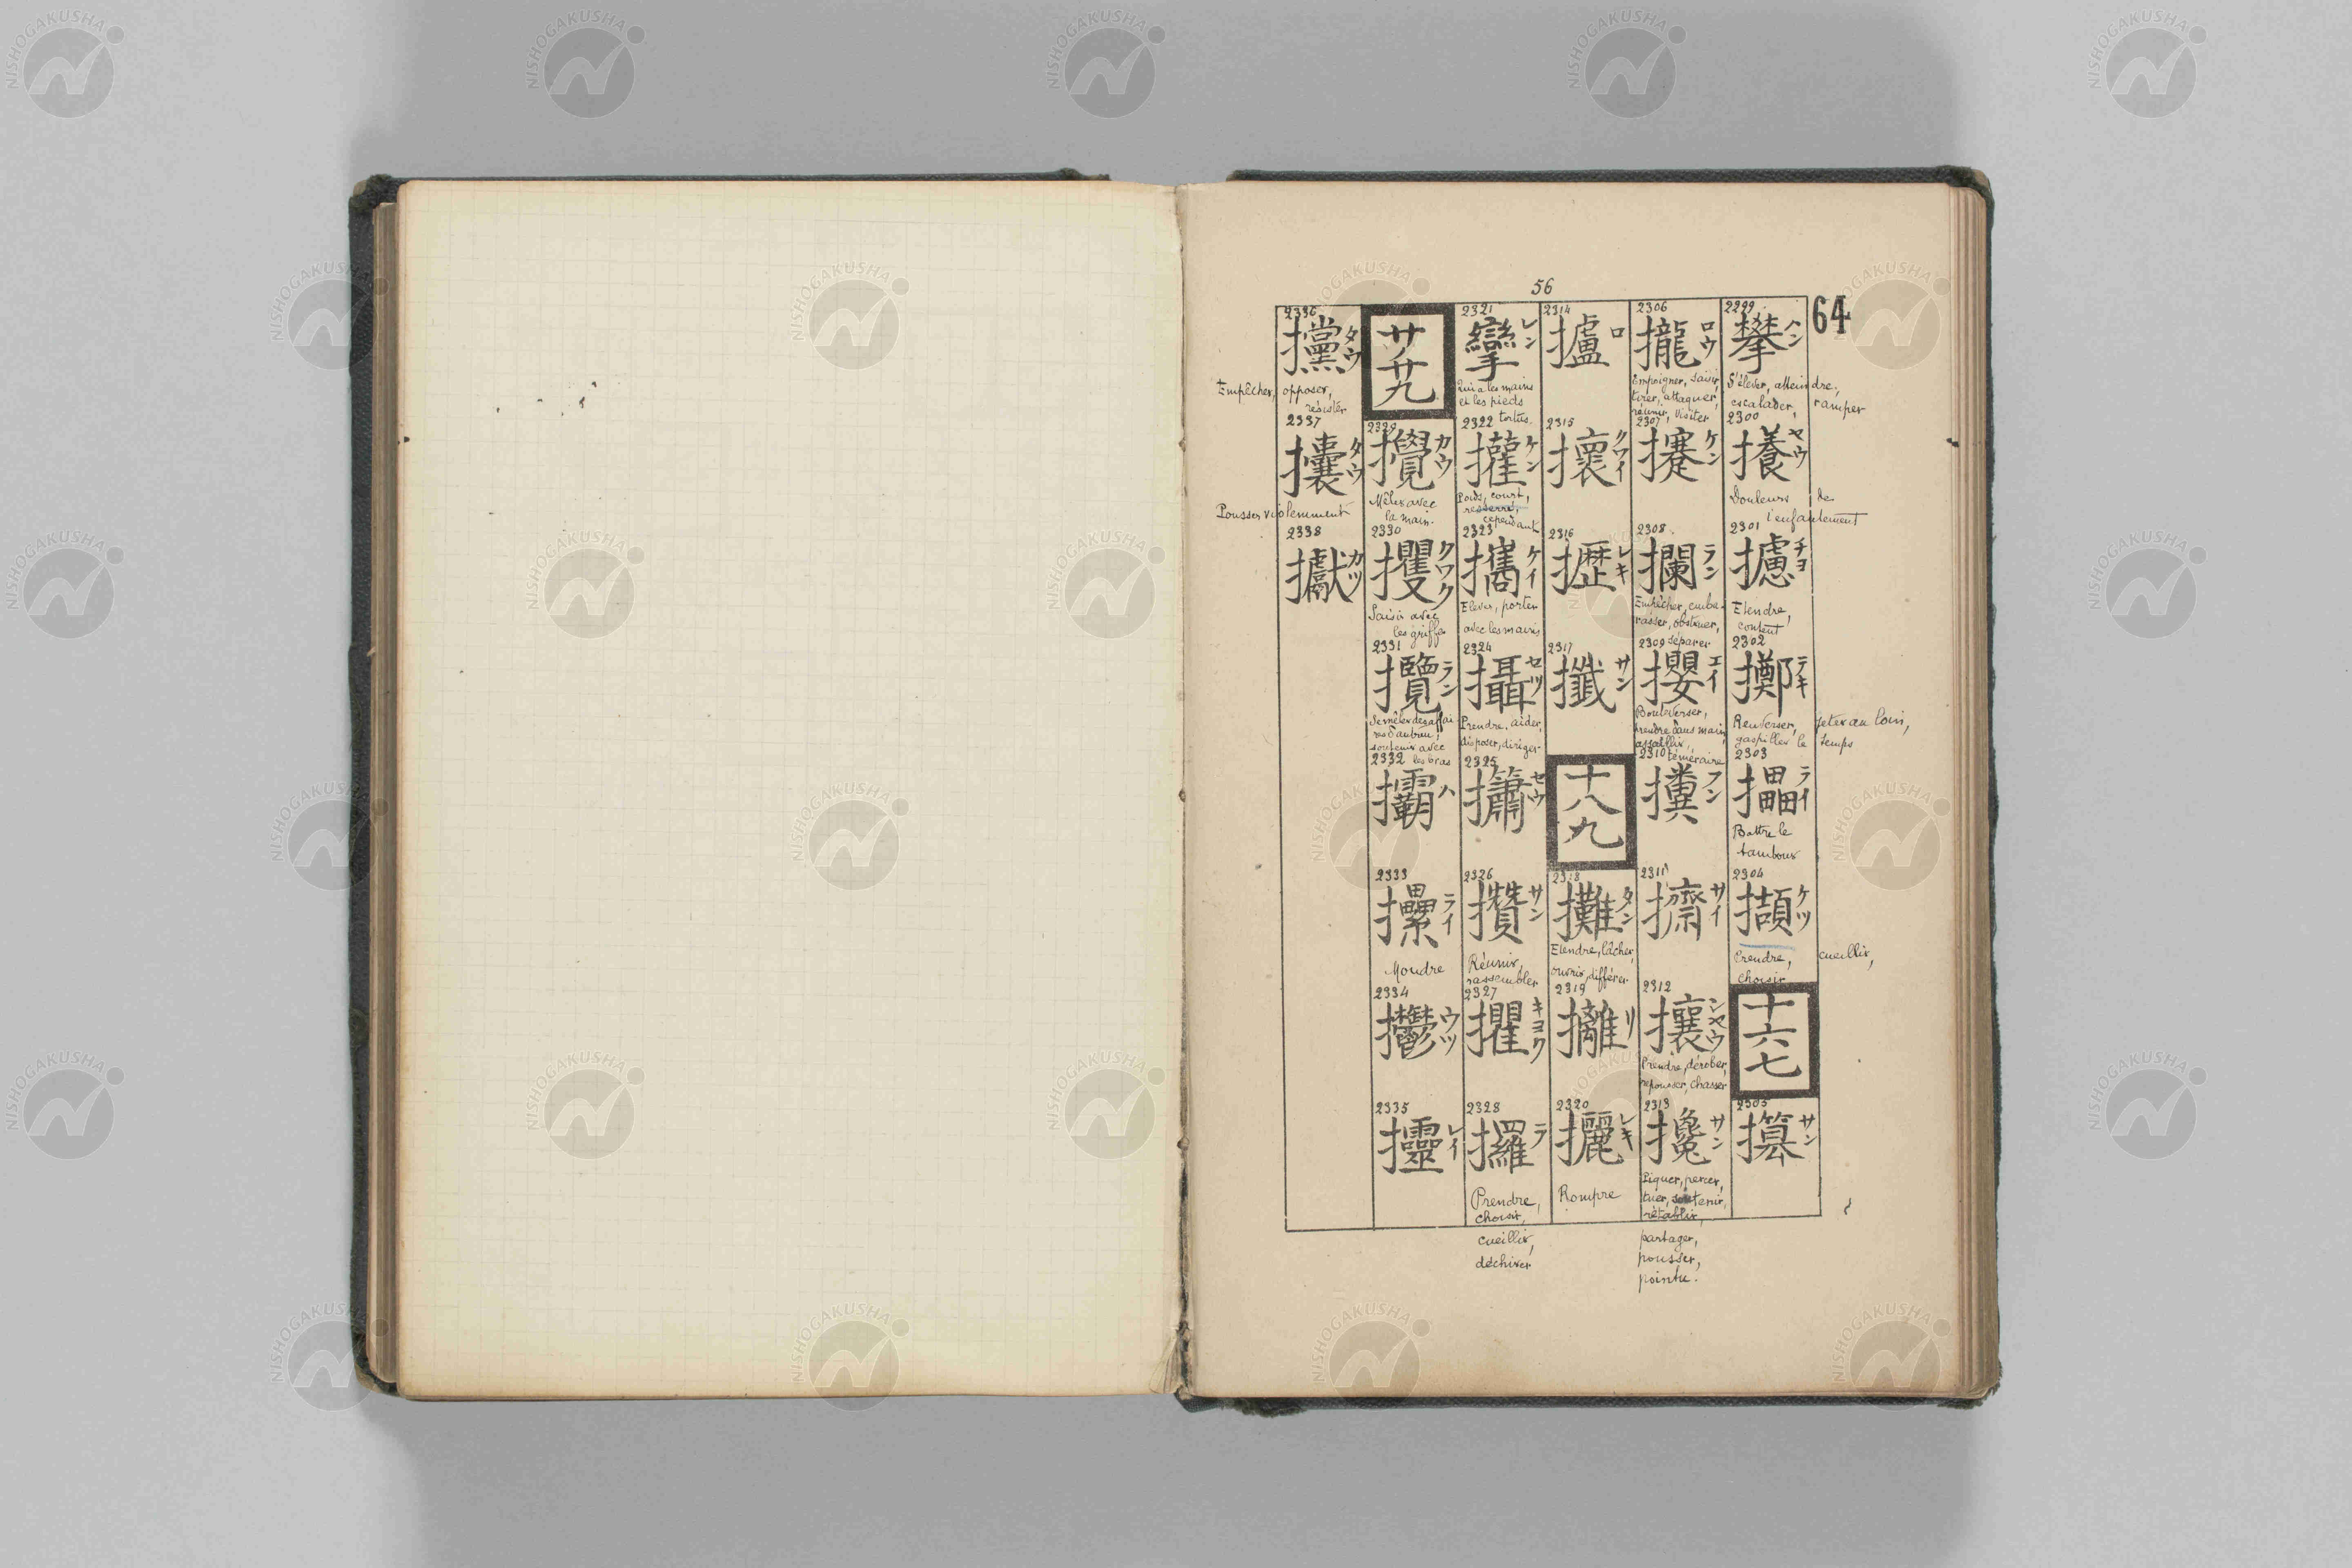 56
64
2299
攀
ヘン
S'élever, atteindre,
escalader, ramper
2300
攁
ヤウ
Douleurs de
l'enfantement
2301
攄
チヨ
Etendre,
content
2302
擲
テキ
Renverser, jeter au loin,
gaspiller le temps
2303
擂
ライ
Battre le
tambour
2304
擷
ケツ
Prendre, cueillir,
choisir
十六七
2305
攥
サン
2306
攏
ロウ
Empoigner, saisir,
tirer, attaquer,
réunir, visiter
2307
攓
ケン
2308
攔
ラン
Empêcher, emba-
rasser, obstruer,
séparer
2309
攖
エイ
Bouleverser,
prendre dans main,
assaillir,
téméraire
2310
フン
2311
擠
サイ
2312
攘
シヤウ
Prendre, dérober,
repousser, chasser
2313
攙
サン
Piquer, percer,
tuer, soutenir,
rétablir,
partager,
pousser,
pointu.
2314
攎
ロ
2315
攘
クワイ
2316
攊
レキ
2317
攕
サン
十八九
2318
攤
タン
Etendre, lâcher,
ouvrir, différer
2319
攡
リ
2320
攦
レキ
Rompre
2321
攣
レン
Qui a les mains
et les pieds
tortus.
2322
ケン
Poids, court,
resserré,
cependant
2323
攜
ケイ
Elever, porter
avec les mains
2324
攝
セツ
Prendre, aider,
disposer, diriger
2325
セウ
2326
攢
サン
Réunir,
rassembler
2327
攫
キヨク
2328
攞
ラ
Prendre,
choisir,
cueillir,
déchirer
廿廿九
2329
攪
カウ
Mêler avec
la main.
2330
攫
クワク
Saisir avec
les griffes
2331
攬
ラン
Se mêler des affai-
res d'autrui,
soutenir avec
les bras
2332
ハ
2333
ライ
Moudre
2334
ウツ
2335
レイ
2336
攩
タウ
Empêcher, opposer,
résister
2337
攮
タウ
Pousser violemment
2338
カツ
NISHOGAKUSHA